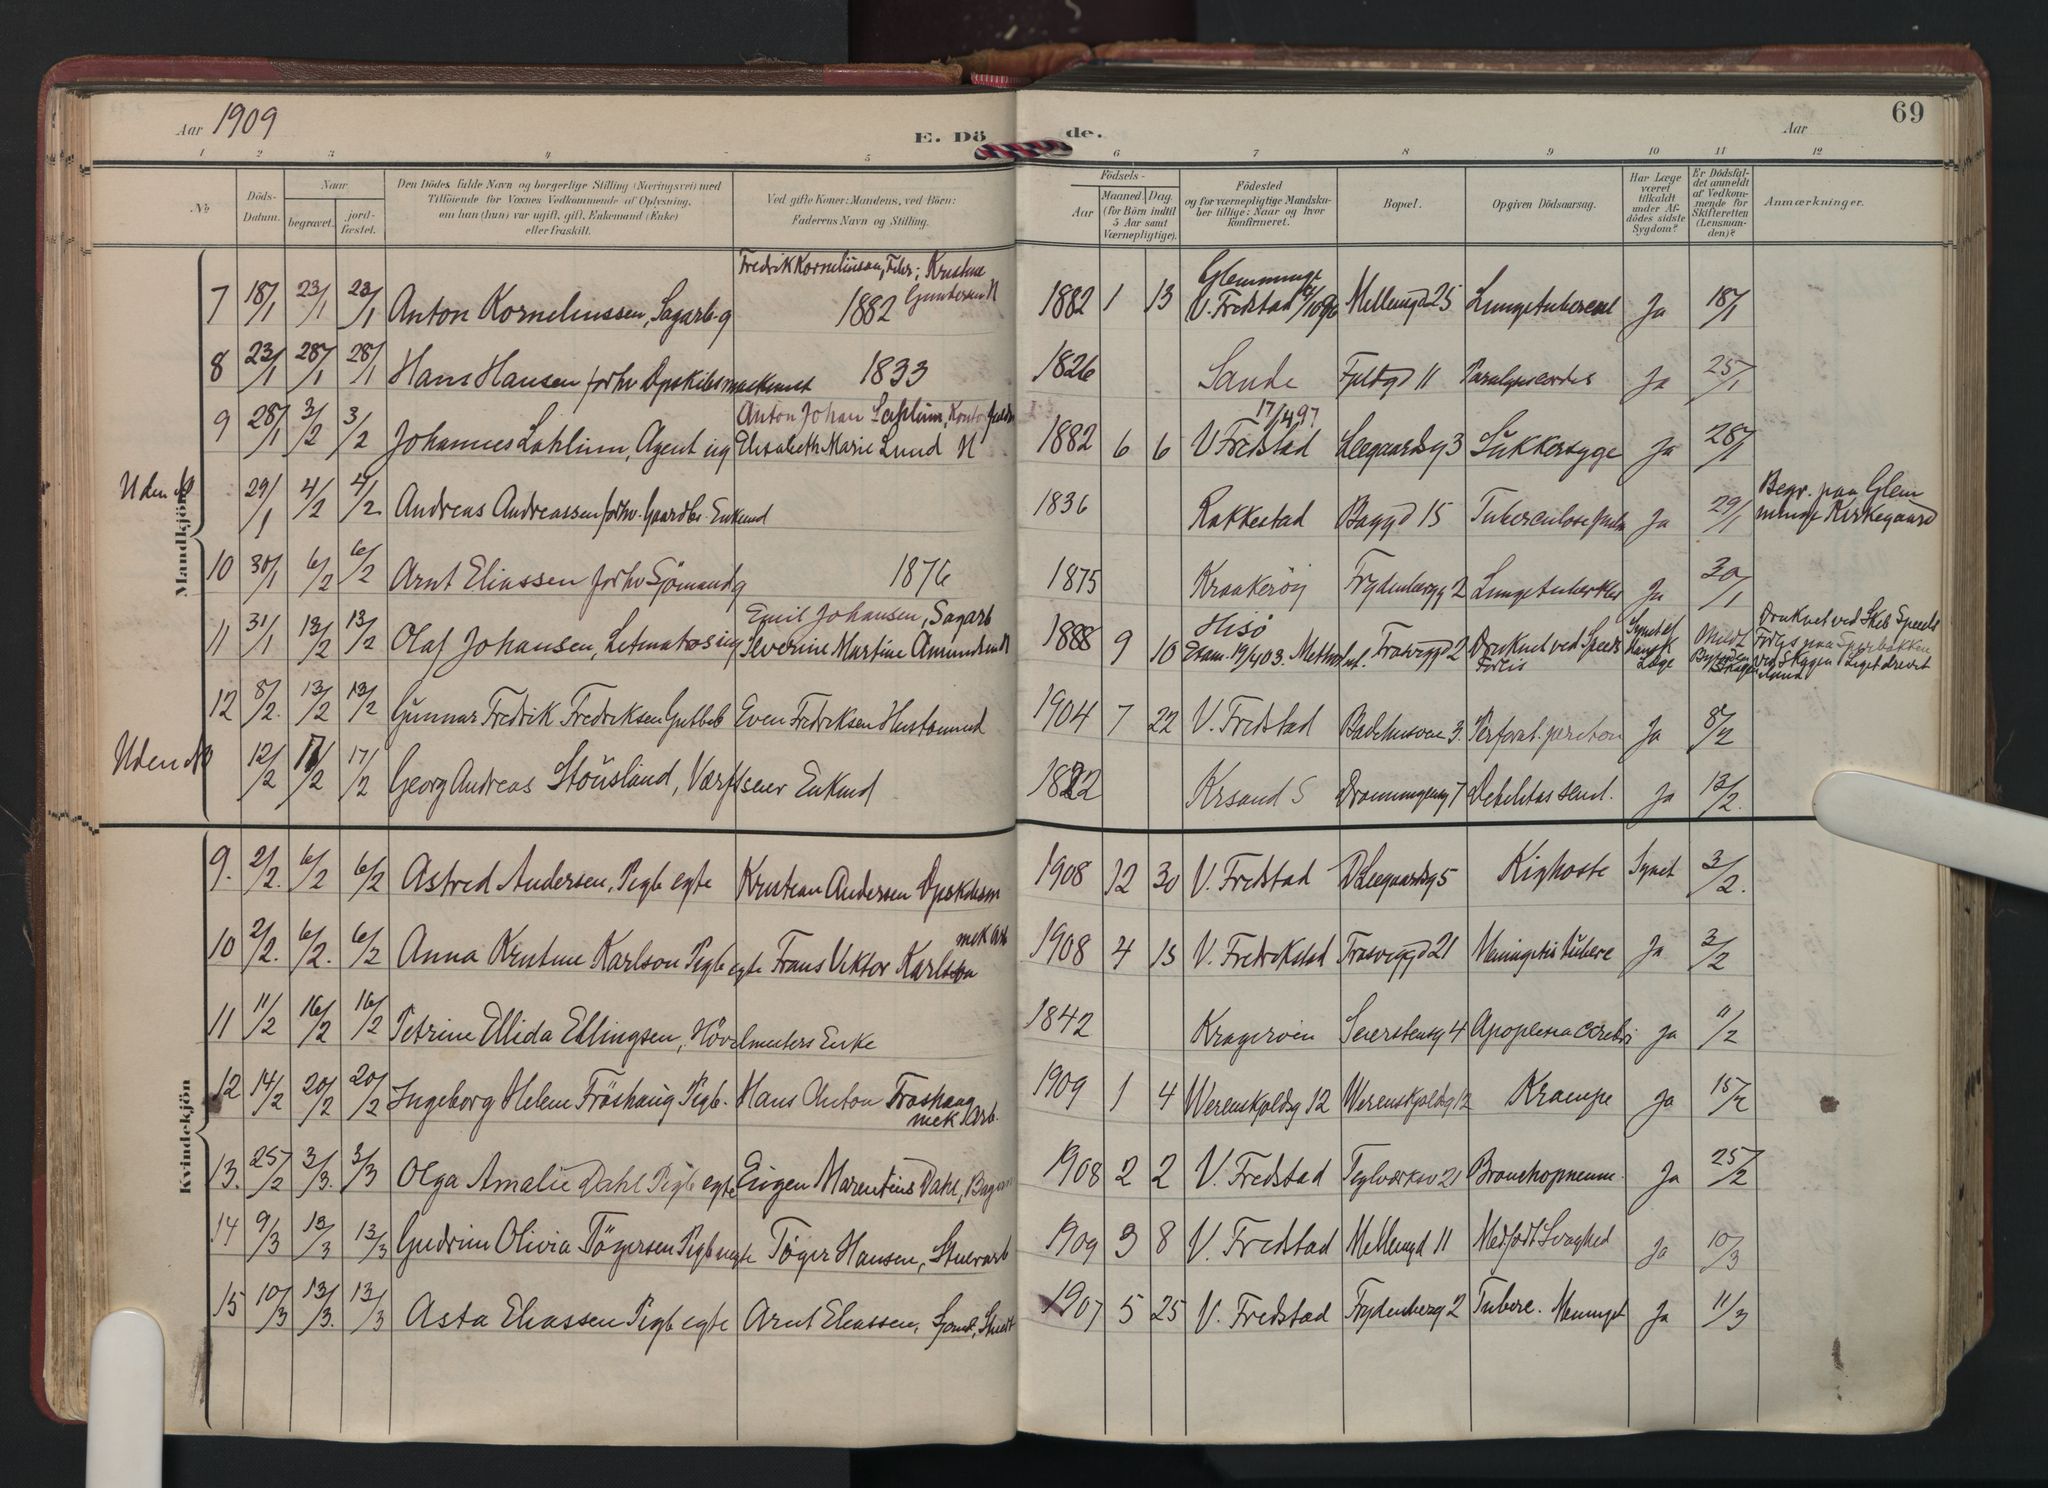 Aar 1909
E. Döde.
Aar
69
1 2 3 4 5 6 7 8 9 10 11 12
No
Döds-Datum.
Naar
begravet.
jord-fæstet.
Den Dödes fulde Navn og borgerlige Stilling (Næringsvei) med
Tilföiende for Voxnes Vedkommende af Oplysning,
om han (hun) var ugift, gift, Enkemand (Enke)
eller fraskilt.
Ved gifte Koner: Mandens, ved Börn:
Faderens Navn og Stilling.
Födsels-
Aar
Maaned Dag.
(for Börn indtil
5 Aar samt
Værnepligtige).
Födested
og for værnepligtige Mandsku-
ber tillige: Naar og hvor
konfirmeret.
Bopæl.
Opgiven Dödsaarsag.
Har Læge
været
tilkaldt
under Af-
dödes sidste
Sygdom?
Er Dödsfal-
det anmeldt
af Vedkom-
mende for
Skifteretten
(Lensman-
den)?
Anmærkninger.
Mandkjön
Fredrik Korneliussen, Kristine Gundersen
7 18/1 23/1 23/1 Anton Korneliussen, Sagarb. g 1882 1882 1 13 Glemminge V. Fredstad Mellemgd 25 Lungetubercul Ja 18/1
8 23/1 28/1 28/1 Hans Hansen forhv Dpskibsmaskinist 1833 1826 Sande Fjeldgd 11 Paralysis cordis Ja 25/1
Anton Johan Lahlum,
9 28/1 3/2 3/2 Johannes Lahlum, Agent ug Elisabeth Marie Lund 1882 6 6 17/4 97 V Fredstad Leegaardsg 3 Sukkersyge Ja 28/1
Uden No 29/1 4/2 4/2 Andreas Andreassen forhv. Gaardbr. Enkemd 1836 Rakkestad Baggd 15 Tuberculose pulm Ja 29/1 Begr. paa Glemminge Kirkegaard
10 30/1 6/2 6/2 Arnt Eliassen forhv Sjömand g 1876 1875 Kraakeröy Frydenbergg 2 Lungetuberkler Ja 30/1
Emil Johansen, Sagarb
11 31/1 13/2 13/2 Olaf Johansen, Letmatros ug Severine Martine Amundsen 1888 9 10 Hisö 19/4 03. Trosvgd 2 Druknet ved Speeds Forlis Synet af Dansk Læge Druknet ved Skib Speeds Forlis paa
12 8/2. 13/2 13/2 Gunnar Fredrik Fredriksen Gutbeb Even Fredriksen 1904 7 22 V. Fredstad Badehusveie 3. Perforat. periton Ja 8/2
Uden No 12/2 17/2 17/2 Georg Andreas Stousland, Værftseier Enkmd 1822 Krsand S Dronningensg 7 Debilitas senil. Ja 13/2.
Kvindekjön
9. 2/2. 6/2 6/2 Astrid Andersen, Pigb egte Kristian Andersen 1908 12 30 V. Fredstad Leegaardsg 5 Kighoste Synet 3/2.
10 2/2. 6/2. 6/2 Anna Kristine Karlson Pigb egte Frans Viktor Karlson mek Arb 1908 4 15 V. Fredrikstad Trosvggd 21 Meningitis tuberc Ja 3/2
11 11/2 16/2 16/2 Petrine Ellida Ellingsen, Hövelmesters Enke 1842 Krageröen Seierstensg 4 Apoplexia cerebri Ja 11/2
12 14/2 20/2 20/2 Ingeborg Helene Fröshaug Pigb. Hans Anton Froshaug mek Arb. 1909 1 4 Werenskjoldsg 12 Werenskjoldsg 12 Krampe Ja 15/2
13. 25/2 3/3. 3/3 Olga Amalie Dahl Pigb egte Eugen Marentius Dahl, Bager 1908 2 2 V. Fredstad Teglværksv 21 Bronchopneum. Ja 25/2
14 9/3 13/3 13/3 Gudrun Olivia Tögersen Pigb uegte Töger Hansen, Stuerarb 1909 3 8 V. Fredstad Mellemgd 11 Medfödt Svaghed Ja 10/3
15 10/3 13/3. 13/3 Asta Eliassen Pigb egte Arnt Eliassen, 1907 5 25 V. Fredstad Frydenberg 2 Tuberc. Meningit Ja 11/3